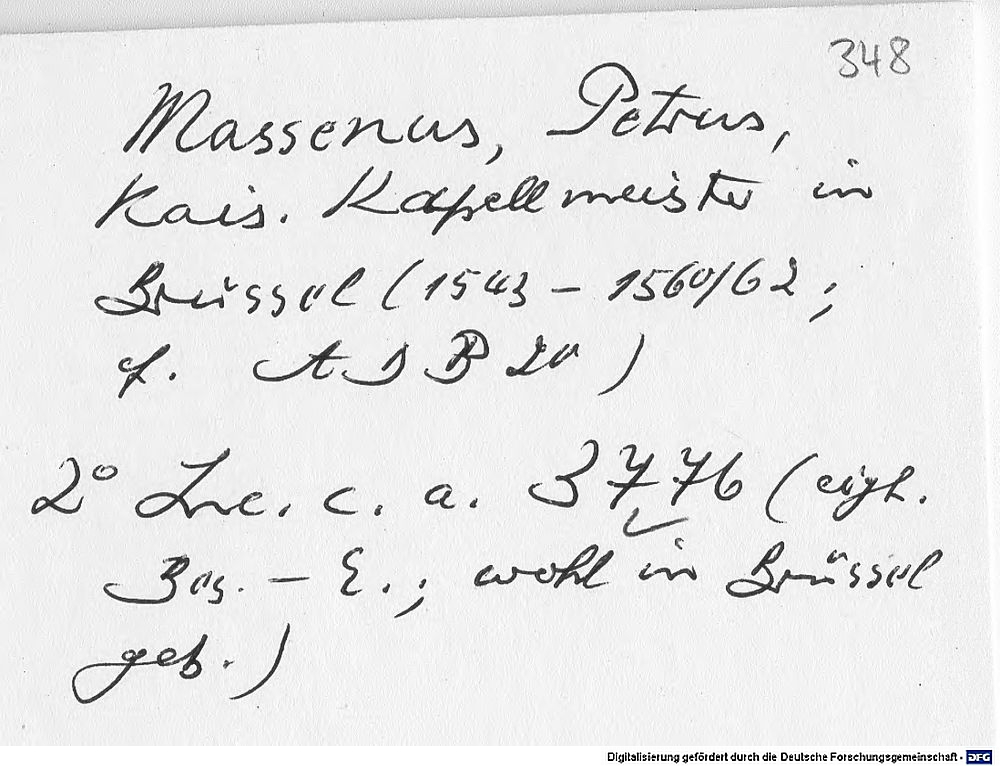 348
Massenus, Petrus,
Kais. Kapellmeister in
Brüssel (1543 – 1560/62;
cf. ADB 20)
2° Inc. c. a. 3776 (eigh.
Bes. – E.; wohl in Brüssel
geb.)
Digitalisierung gefördert durch die Deutsche Forschungsgemeinschaft - DFG